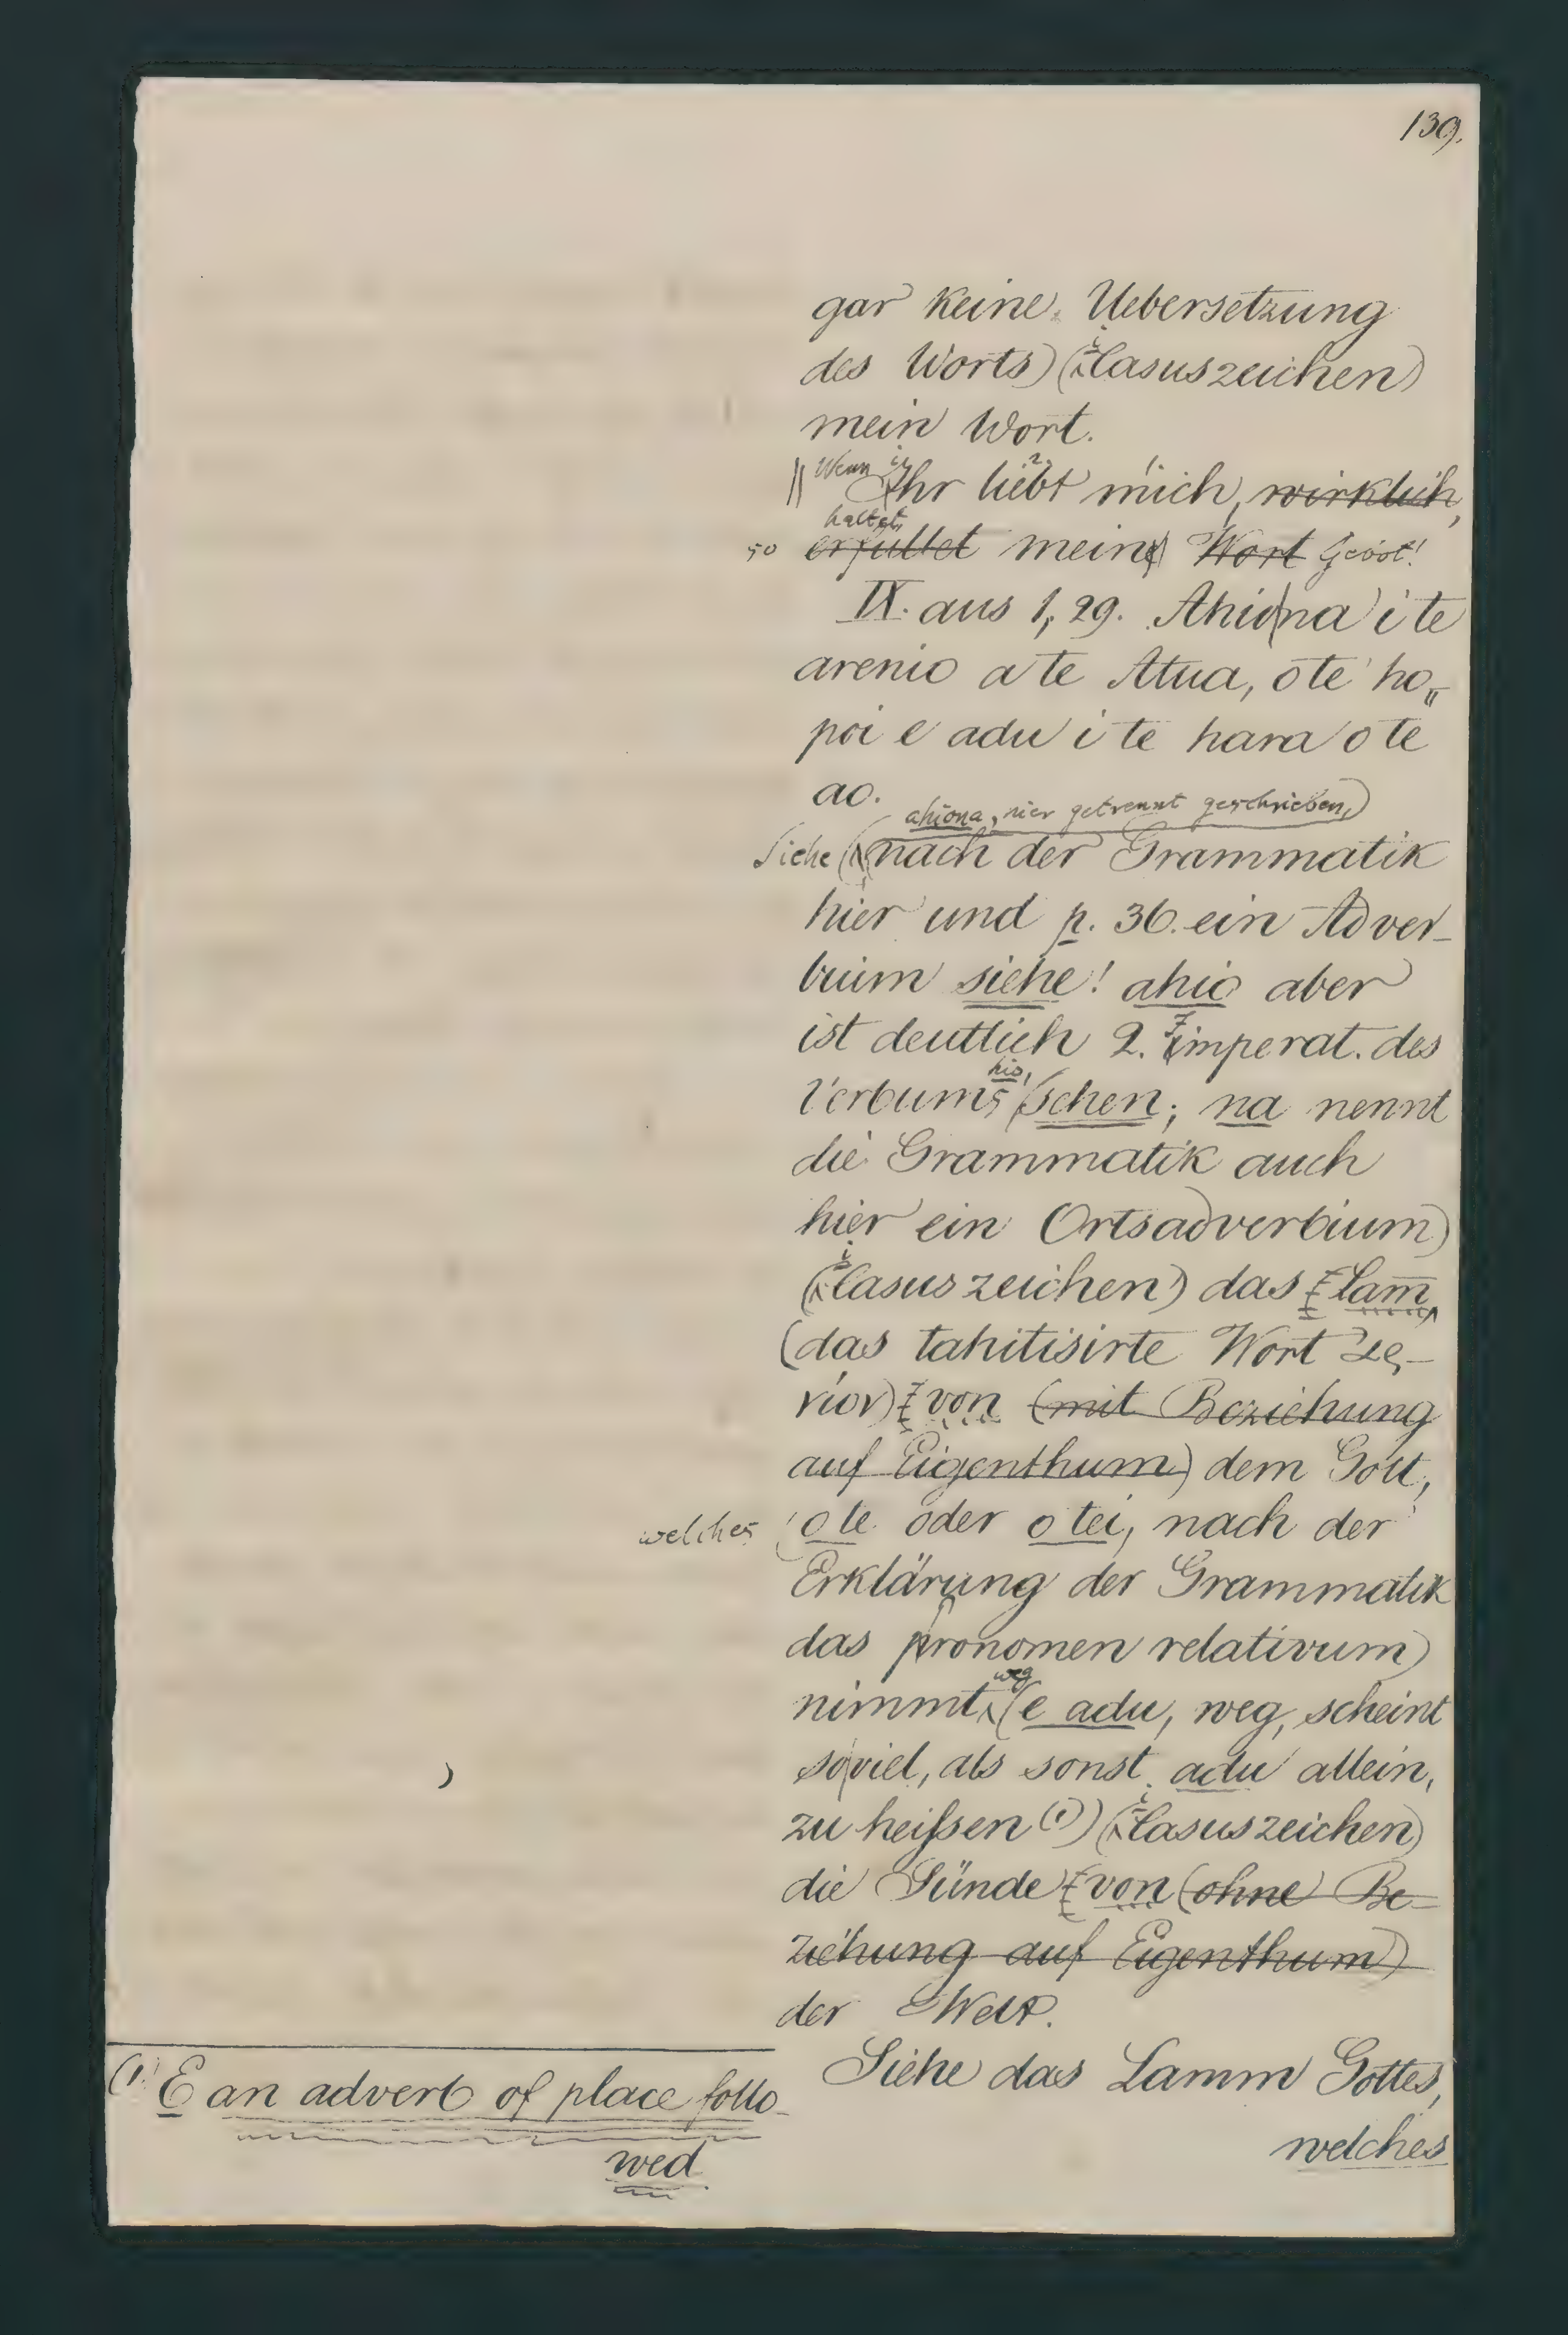 139.
gar keine Uebersetzung
des Worts) (i Casuszeichen)
mein Wort.
Wenn ihr liebt mich, wirklich,
haltet
so erfüllet meine Wort Gebot!
IX. aus 1, 29. Ahio na i te
arenio a te Atua, o te ho=
poi e adu i te hara o te
ao.
ahiona, hier getrennt geschrieben,
Siehe (nach der Grammatik
hier und p. 36. ein Adver-
bium siehe! ahio aber
ist deutlich 2. imperat. des
hio,
Verbums sehen; na nennt
die Grammatik auch
hier ein Ortsadverbium)
(i Casuszeichen) das Lam̅
(das tahitisirte Wort ἀρ-
νίον) von (mit Beziehung
auf Eigenthum) dem Gott,
welches (o te oder o tei, nach der
Erklärung der Grammatik
das pronomen relativum)
weg
nimmt (e adu, weg, scheint
soviel, als sonst adu allein,
zu heißen (1)) (i Casuszeichen)
die Sünde von (ohne Be-
ziehung auf Eigenthum)
der Welt.
Siehe das Lamm Gottes,
welches
(1) E an adverb of place follo-
wed